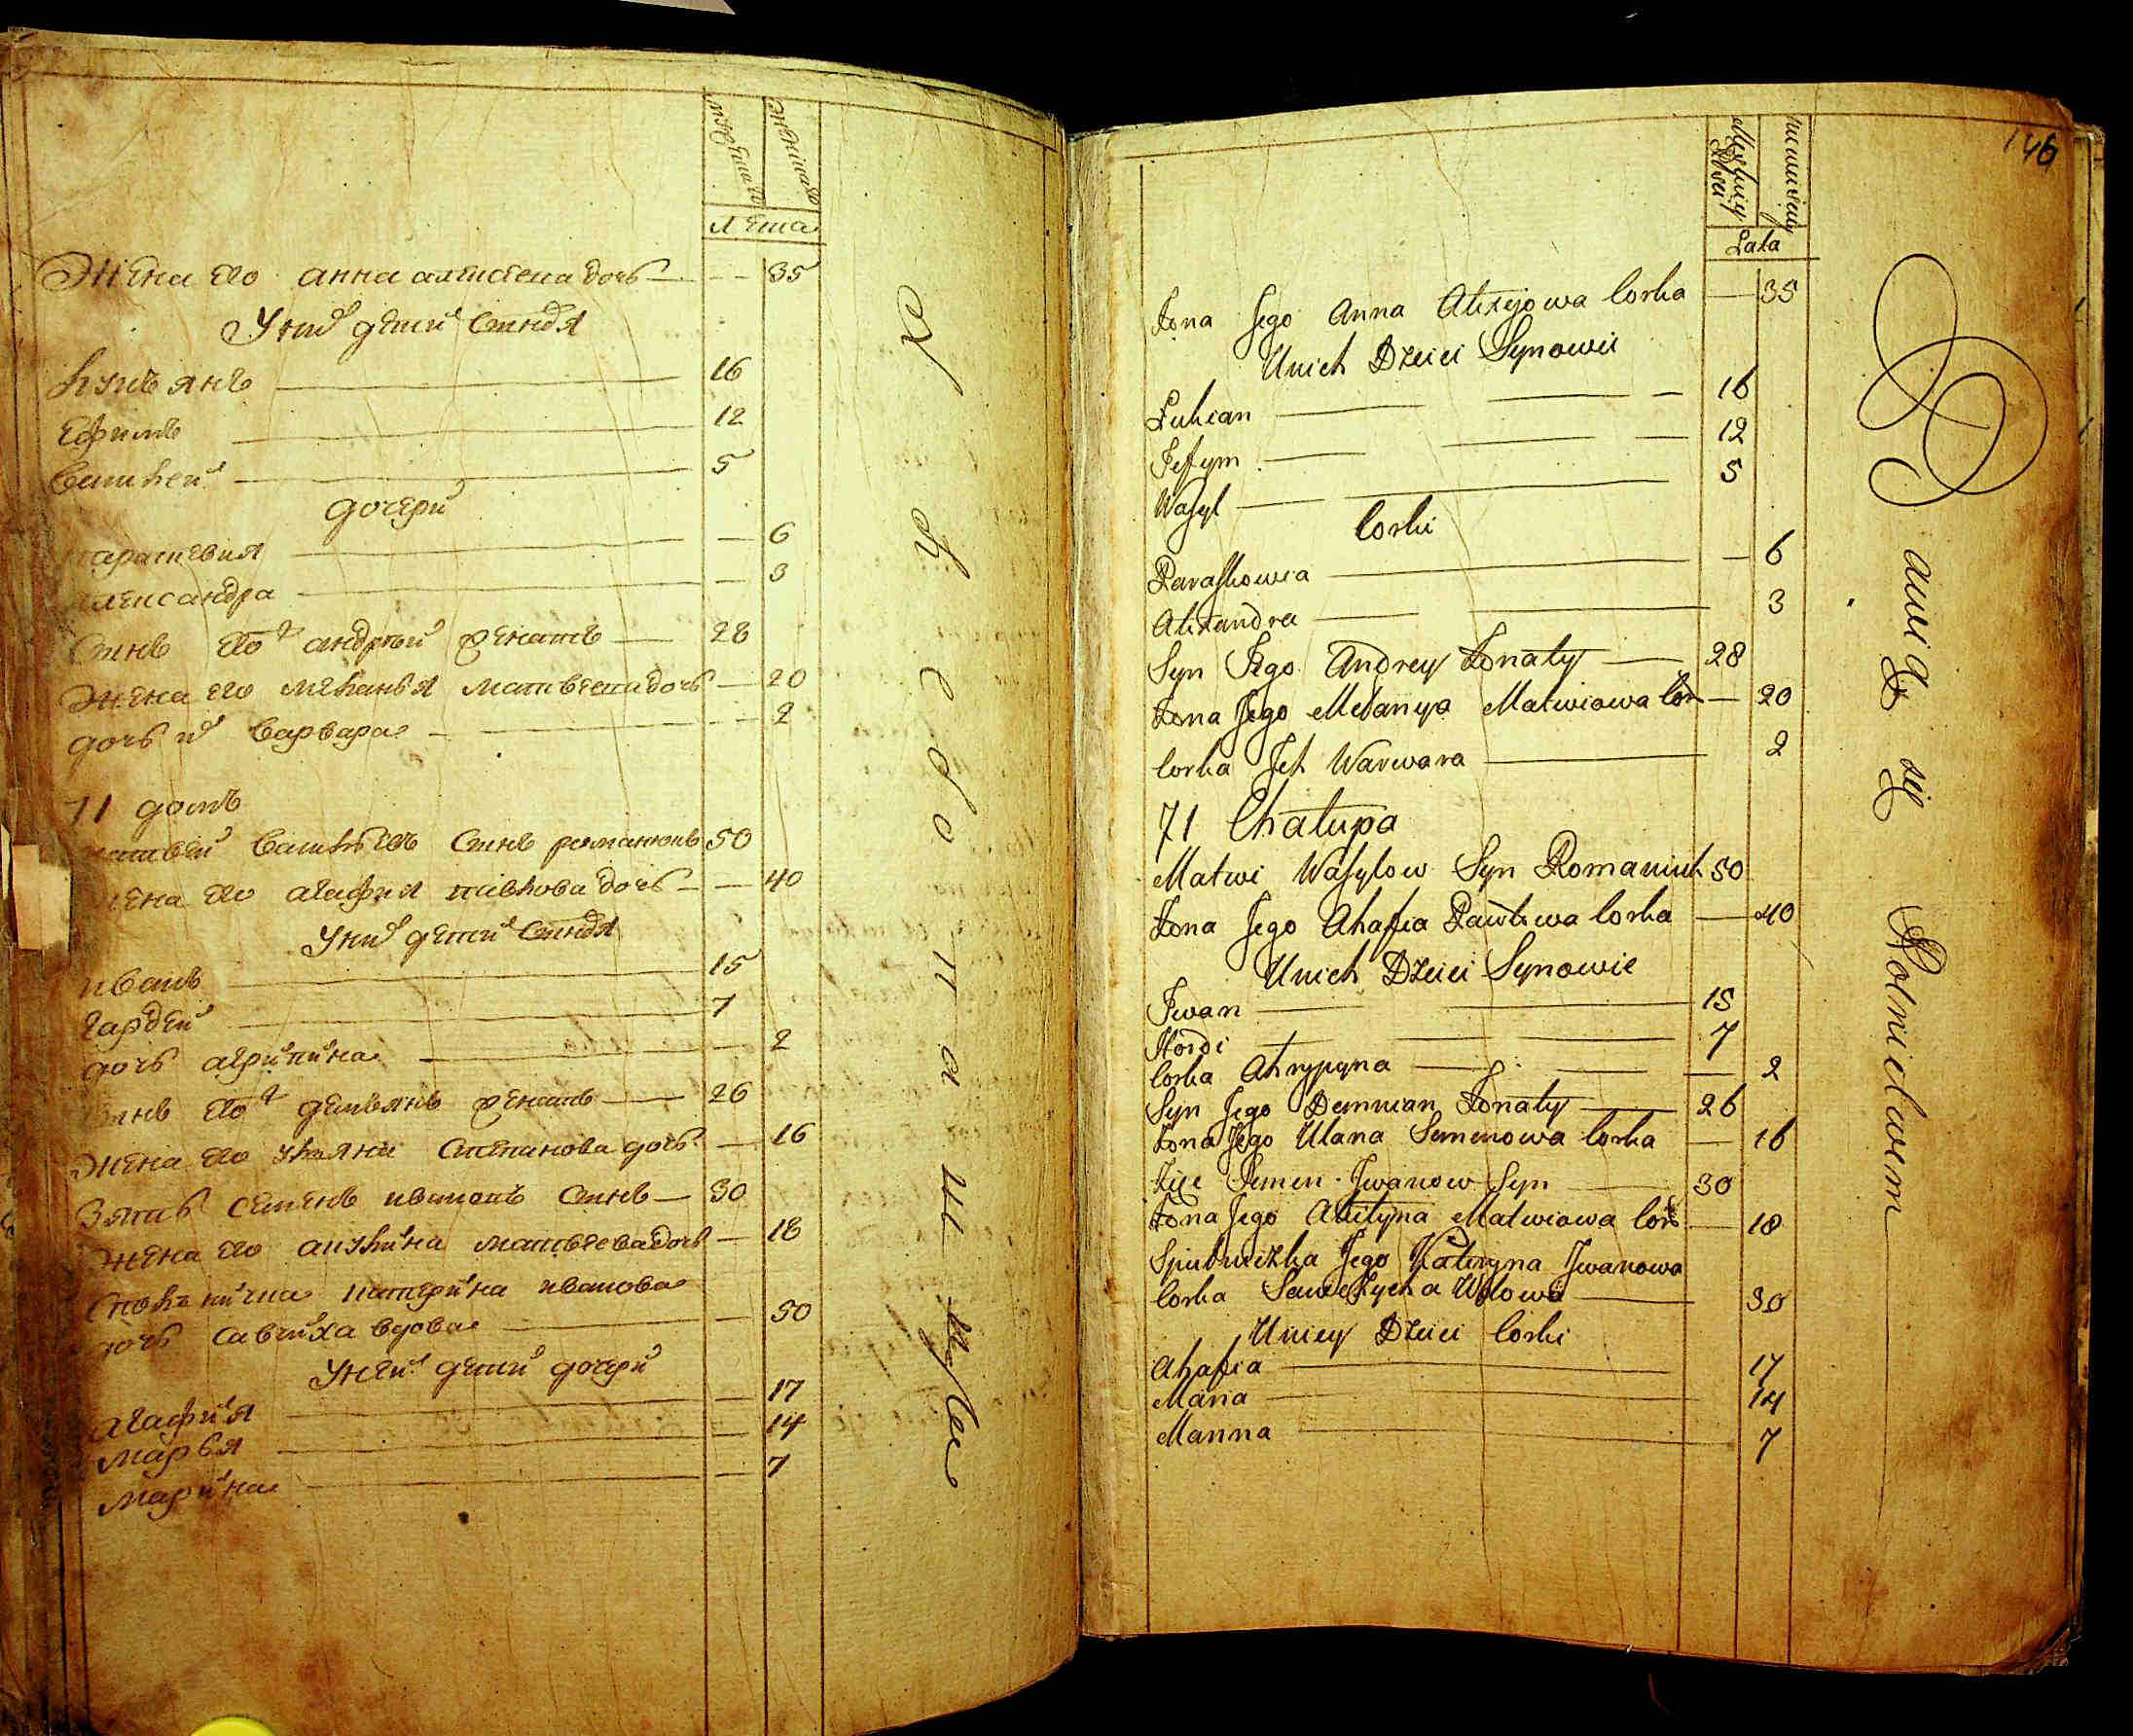 Жена его анна алексѣева дочь — 35
У них дети Сыновя
Лукъянъ — 16
Ефимъ — 12
Василей — 5
дочери
Парасковия — 6
Александра — 3
Сынъ его андрѣй женатъ — 28
Жена его меланья матвѣева дочь — 20
дочь их варвара — 2
71 домъ
Матвѣй Васильевъ Сынъ романюкъ 50
Жена его агафия павлова дочь — 40
У них дети Сыновя
иванъ — 15
гардей — 7
дочь агрипина — 2
Сынъ его демьянъ женатъ — 26
Жена его уляна дочь — 16
Зять семенъ ивановъ Сынъ — 30
Жена его акулина матвѣева дочь — 18
катерина иванова
дочь савчиха вдова — 50
У неи дети дочери
агафия — 17
марья — 14
марина — 7
лета
146
Lata
Żona Jego Anna Alexejowa Corka — 35
Unich Dzieci Synowie
Łukian — 16
Jefym — 12
Wasyl — 5
Corki
Paraskowia — 6
Alexandra — 3
Syn Jego Andrey Żonaty — 28
Żona Jego Melanya Matwiowa Cor — 20
Corka Jch Warwara — 2
71 Chałupa
Matwi Wasylow Syn Romaniuk 50
Żona Jego Ahafia Pawłowa Corka — 40
Unich Dzieci Synowie
Jwan — 15
Hordi — 7
Corka Ahrypyna — 2
Syn Jego Demnian Żonaty — 26
Żona Jego Ulana Semenowa Corka — 16
Zięc Semen Jwanow Syn — 30
Żona Jego Matwiowa Cor — 18
Jego Kateryna Jwanowa
Corka Wdowa — 30
Uniey Dzieci Corki
Ahafia — 17
Maria — 14
Marina — 7
Bawią się Rolnictwem